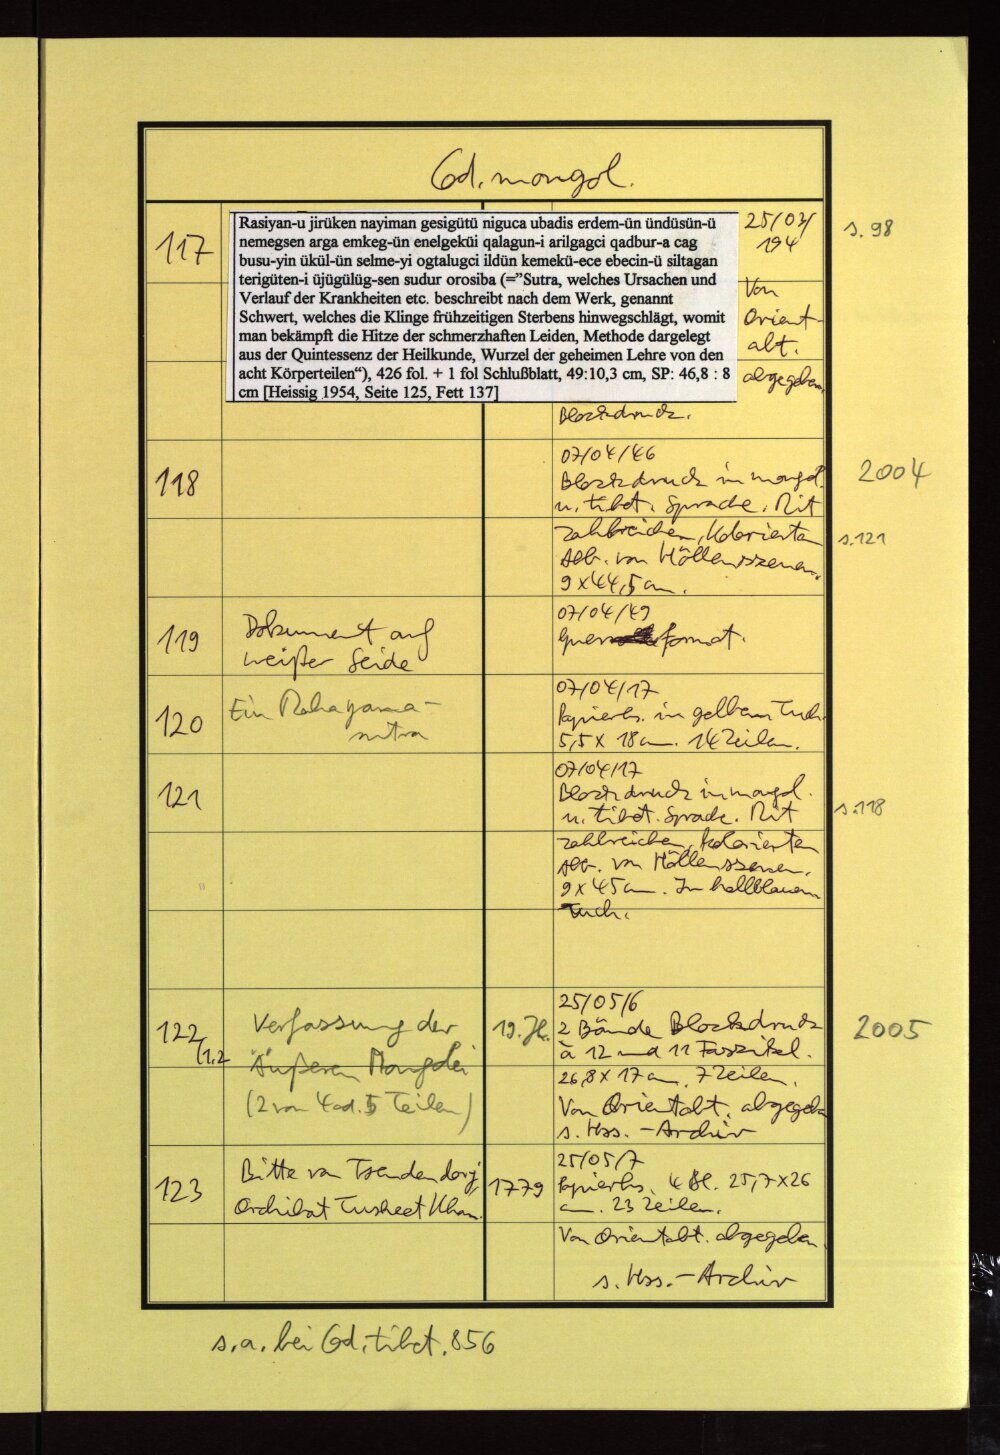 Cod. mongol.
117
Rasiyan-u jirüken nayiman gesigütü niguca ubadis erdem-ün ündüsün-ü
nemegsen arga emkeg-ün enelgeküi qalagun-i arilgagci qadbur-a cag
busu-yin ükül-ün selme-yi ogtalugci ildün kemekü-ece ebecin-ü siltagan
terigüten-i üjügülüg-sen sudur orosiba (=”Sutra, welches Ursachen und
Verlauf der Krankheiten etc. beschreibt nach dem Werk, genannt
Schwert, welches die Klinge frühzeitigen Sterbens hinwegschlägt, womit
man bekämpft die Hitze der schmerzhaften Leiden, Methode dargelegt
aus der Quintessenz der Heilkunde, Wurzel der geheimen Lehre von den
acht Körperteilen“), 426 fol. + 1 fol Schlußblatt, 49:10,3 cm, SP: 46,8 : 8
cm [Heissig 1954, Seite 125, Fett 137]
25/03/
194
Von
Orient-
abt.
abgegeben.
Blockdruck.
s. 98
118
07/04/46
Blockdruck in mongol.
u. tibet. Sprache. Mit
zahlreichen, kolorierten
Abb. von Höllenszenen.
9 x 44,5 cm.
2004
s. 121
119
Dokument auf
weißer Seide
07/04/49
Querformat.
120
Ein Mahayana-
sutra
07/04/17
Papierhs. in gelbem Tuch.
5,5 x 18 cm. 14 Zeilen.
121
07/04/17
Blockdruck in mongol.
u. tibet. Sprache. Mit
zahlreichen, kolorierten
Abb. von Höllenszenen.
9 x 45 cm. In hellblauem
Tuch.
s. 118
122
(1.2
Verfassung der
Äußeren Mongolei
(2 von 4 od. 5 Teilen)
19. Jh.
25/05/6
2 Bände Blockdruck
à 12 und 11 Faszikel.
26,8 x 17 cm. 7 Zeilen.
Von Orientabt. abgegeben
s. Hss.-Archiv
2005
123
Bitte von Tsendendorj
Orchibat Tusheet Khan.
1779
25/05/7
Papierhs. 4 Bl. 25,7 x 26
cm. 23 Zeilen.
Von Orientabt. abgegeben.
s. Hss.-Archiv
s. a. bei Cod. tibet. 856